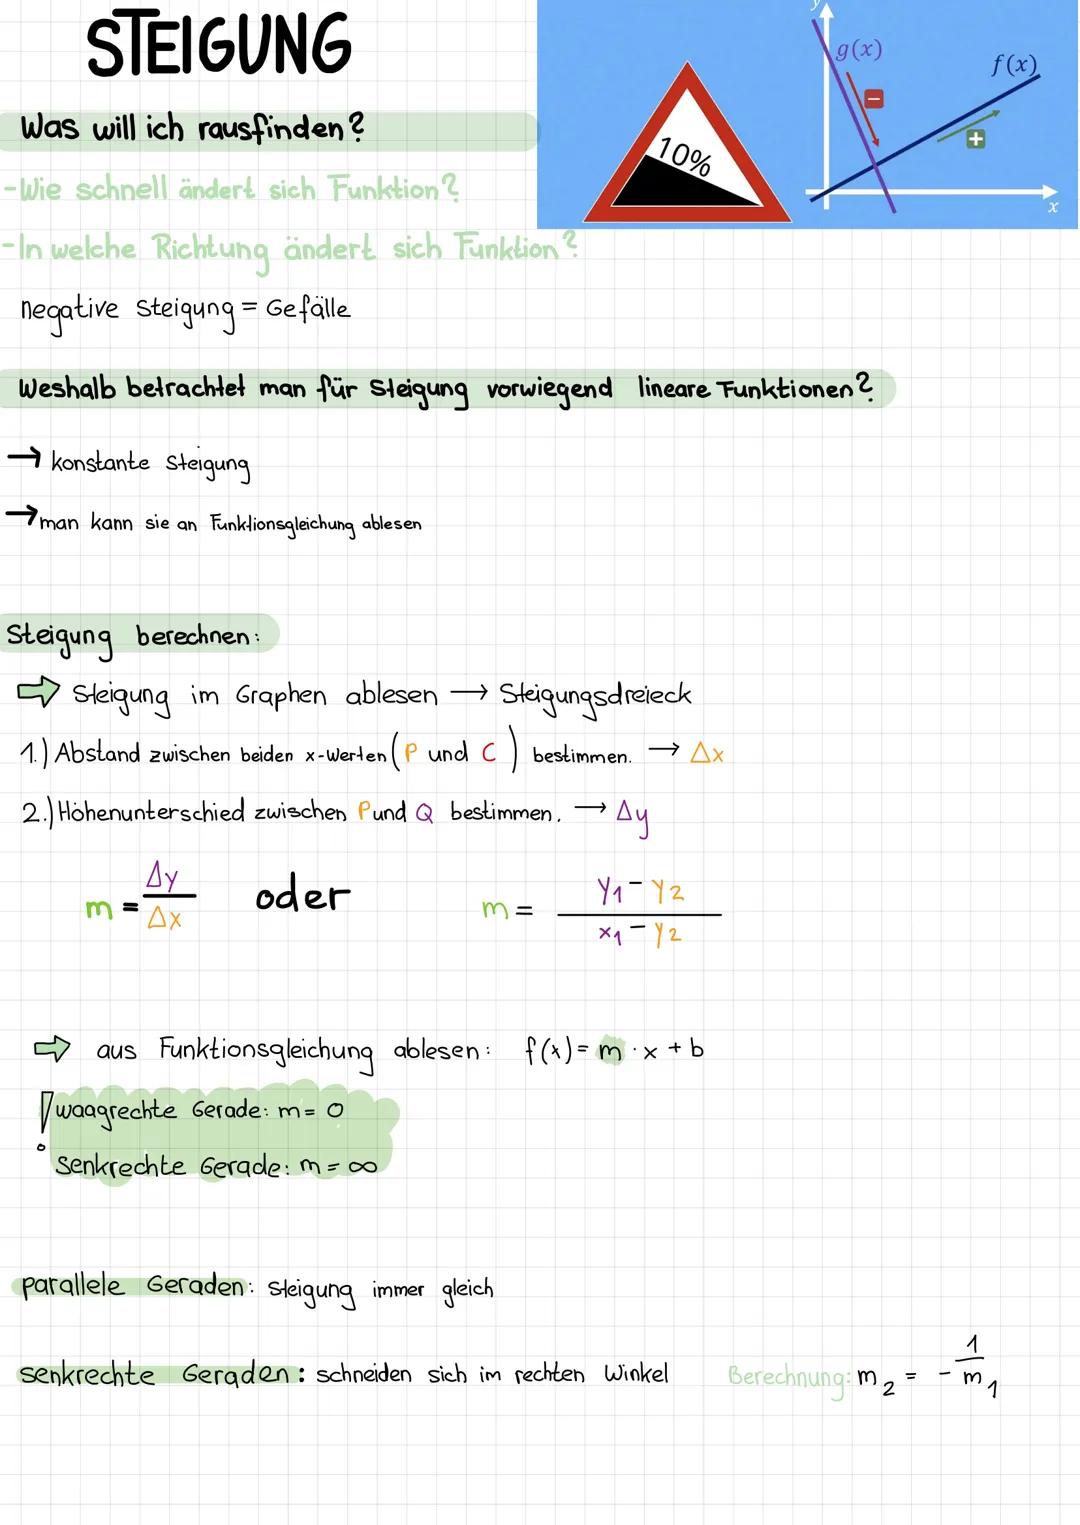 STEIGUNG
y
g(x)
f(x)
10%
x
Was will ich rausfinden?
-Wie schnell ändert sich Funktion?
-In welche Richtung ändert sich Funktion?
negative Steigung = Gefälle
Weshalb betrachtet man für Steigung vorwiegend lineare Funktionen?
→ konstante Steigung
→ man kann sie an Funktionsgleichung ablesen
Steigung berechnen:
⇨ Steigung im Graphen ablesen → Steigungsdreieck
1.) Abstand zwischen beiden x-Werten (P und C) bestimmen. → Δx
2.) Höhenunterschied zwischen P und Q bestimmen. → Δy
m = Δy / Δx oder m = y1 - y2 / x1 - y2
⇨ aus Funktionsgleichung ablesen: f(x) = m · x + b
! waagrechte Gerade: m = 0
Senkrechte Gerade: m = ∞
parallele Geraden: Steigung immer gleich
senkrechte Geraden: schneiden sich im rechten Winkel Berechnung: m2 = - 1 / m1